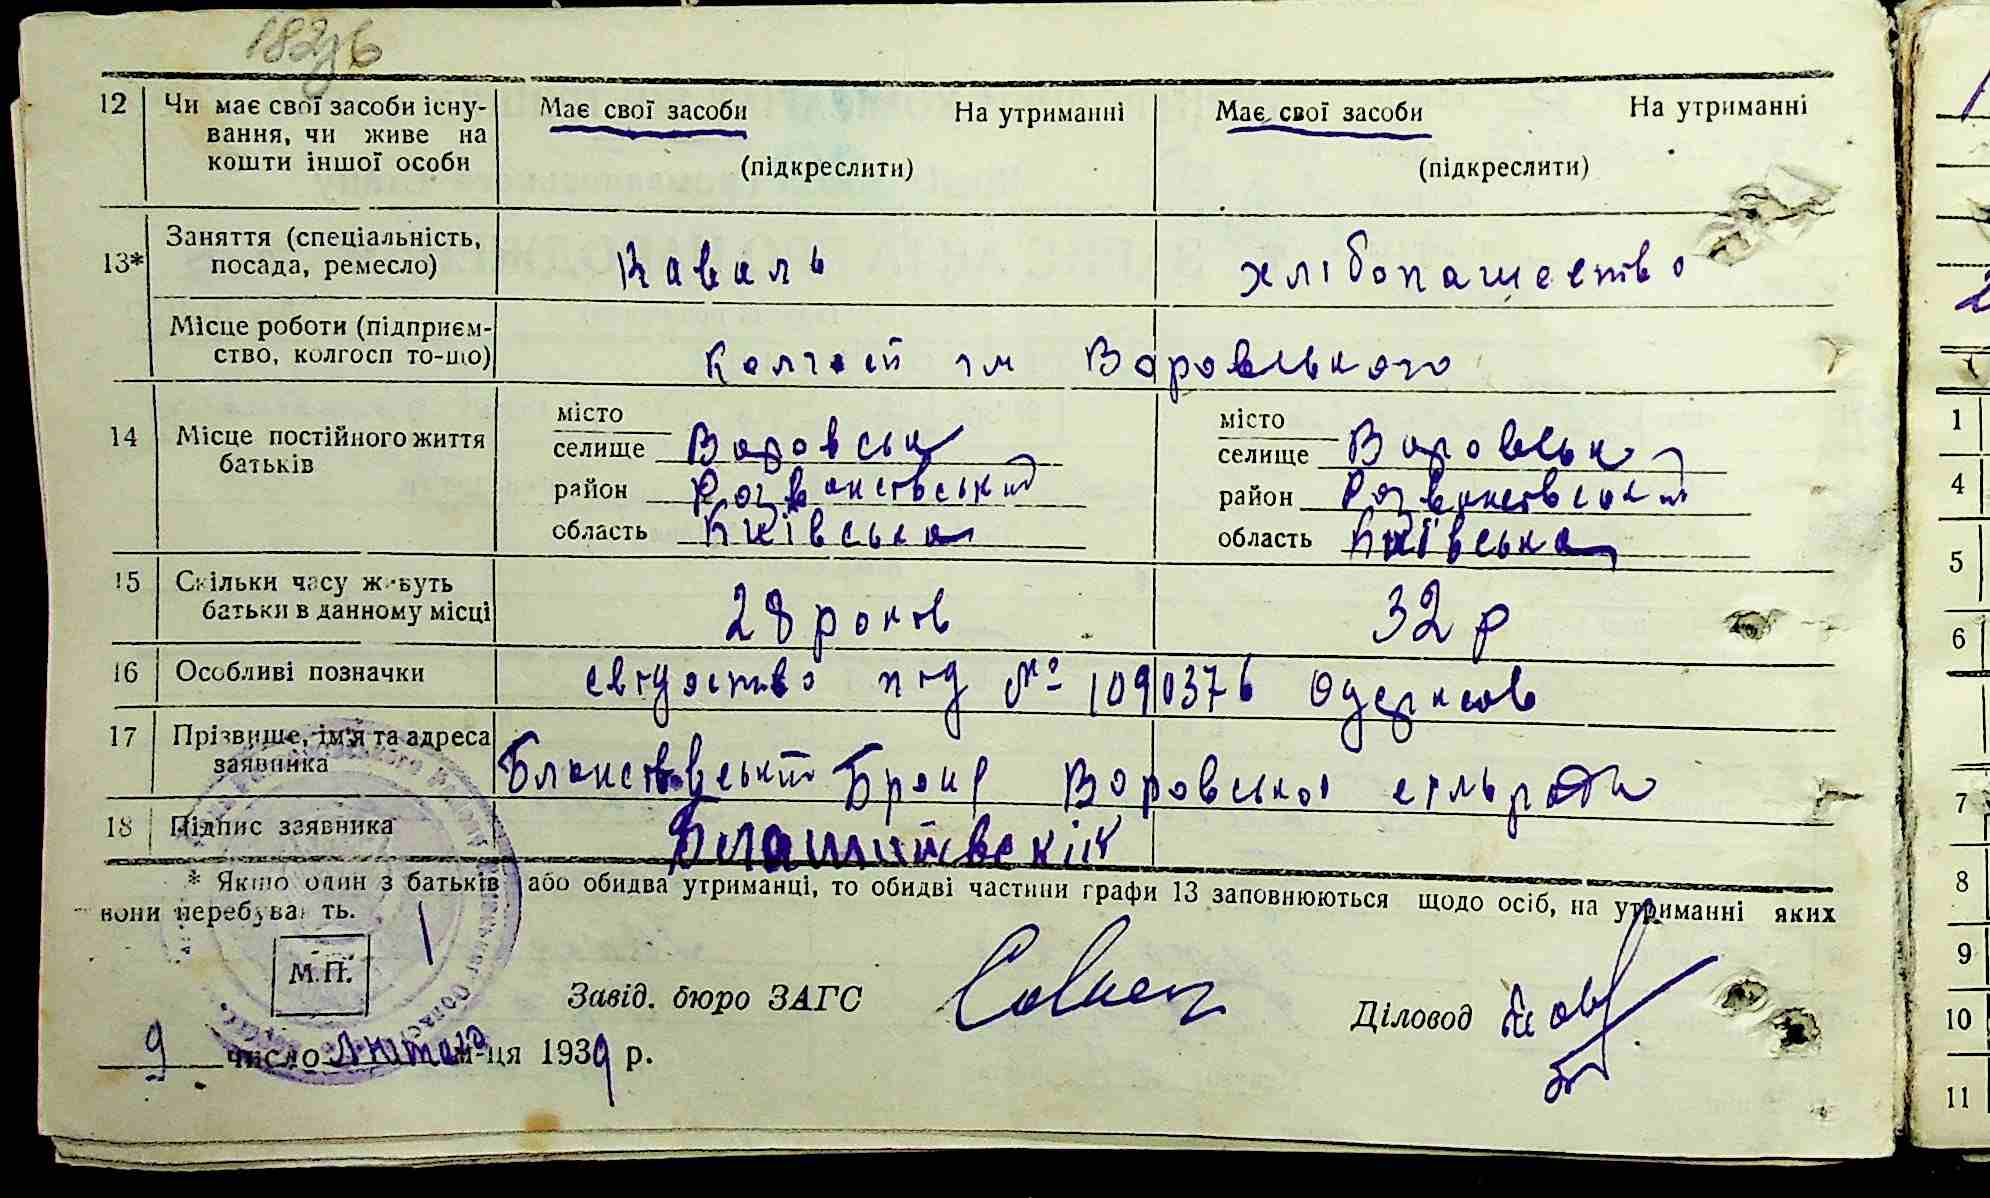 182зв
12 Чи має свої засоби існу-
вання, чи живе на
кошти іншої особи
Має свої засоби На утриманні
(підкреслити)
Має свої засоби На утриманні
(підкреслити)
13* Заняття (спеціальність,
посада, ремесло)
Каваль
хлібопашество
Місце роботи (підприєм-
ство, колгосп то-що)
колгосп ім Воровського
14 Місце постійного життя
батьків
місто
селище Воровськ
район
область Київська
місто
селище Воровськ
район
область Київська
15 Скільки часу живуть
батьки в данному місці
28 років
32 р
16 Особливі позначки
свідоство під № 1090376 Одержав
17 Прізвище, ім'я та адреса
заявника
Броні Воровської сільради
18 Підпис заявника
* Якщо один з батьків або обидва утриманці, то обидві частини графи 13 заповнюються щодо осіб, на утриманні яких
вони перебувають.
М.П.
Завід. бюро ЗАГС
Діловод
9 число Лютого м-ця 1939 р.
1
4
5
6
7
8
9
10
11